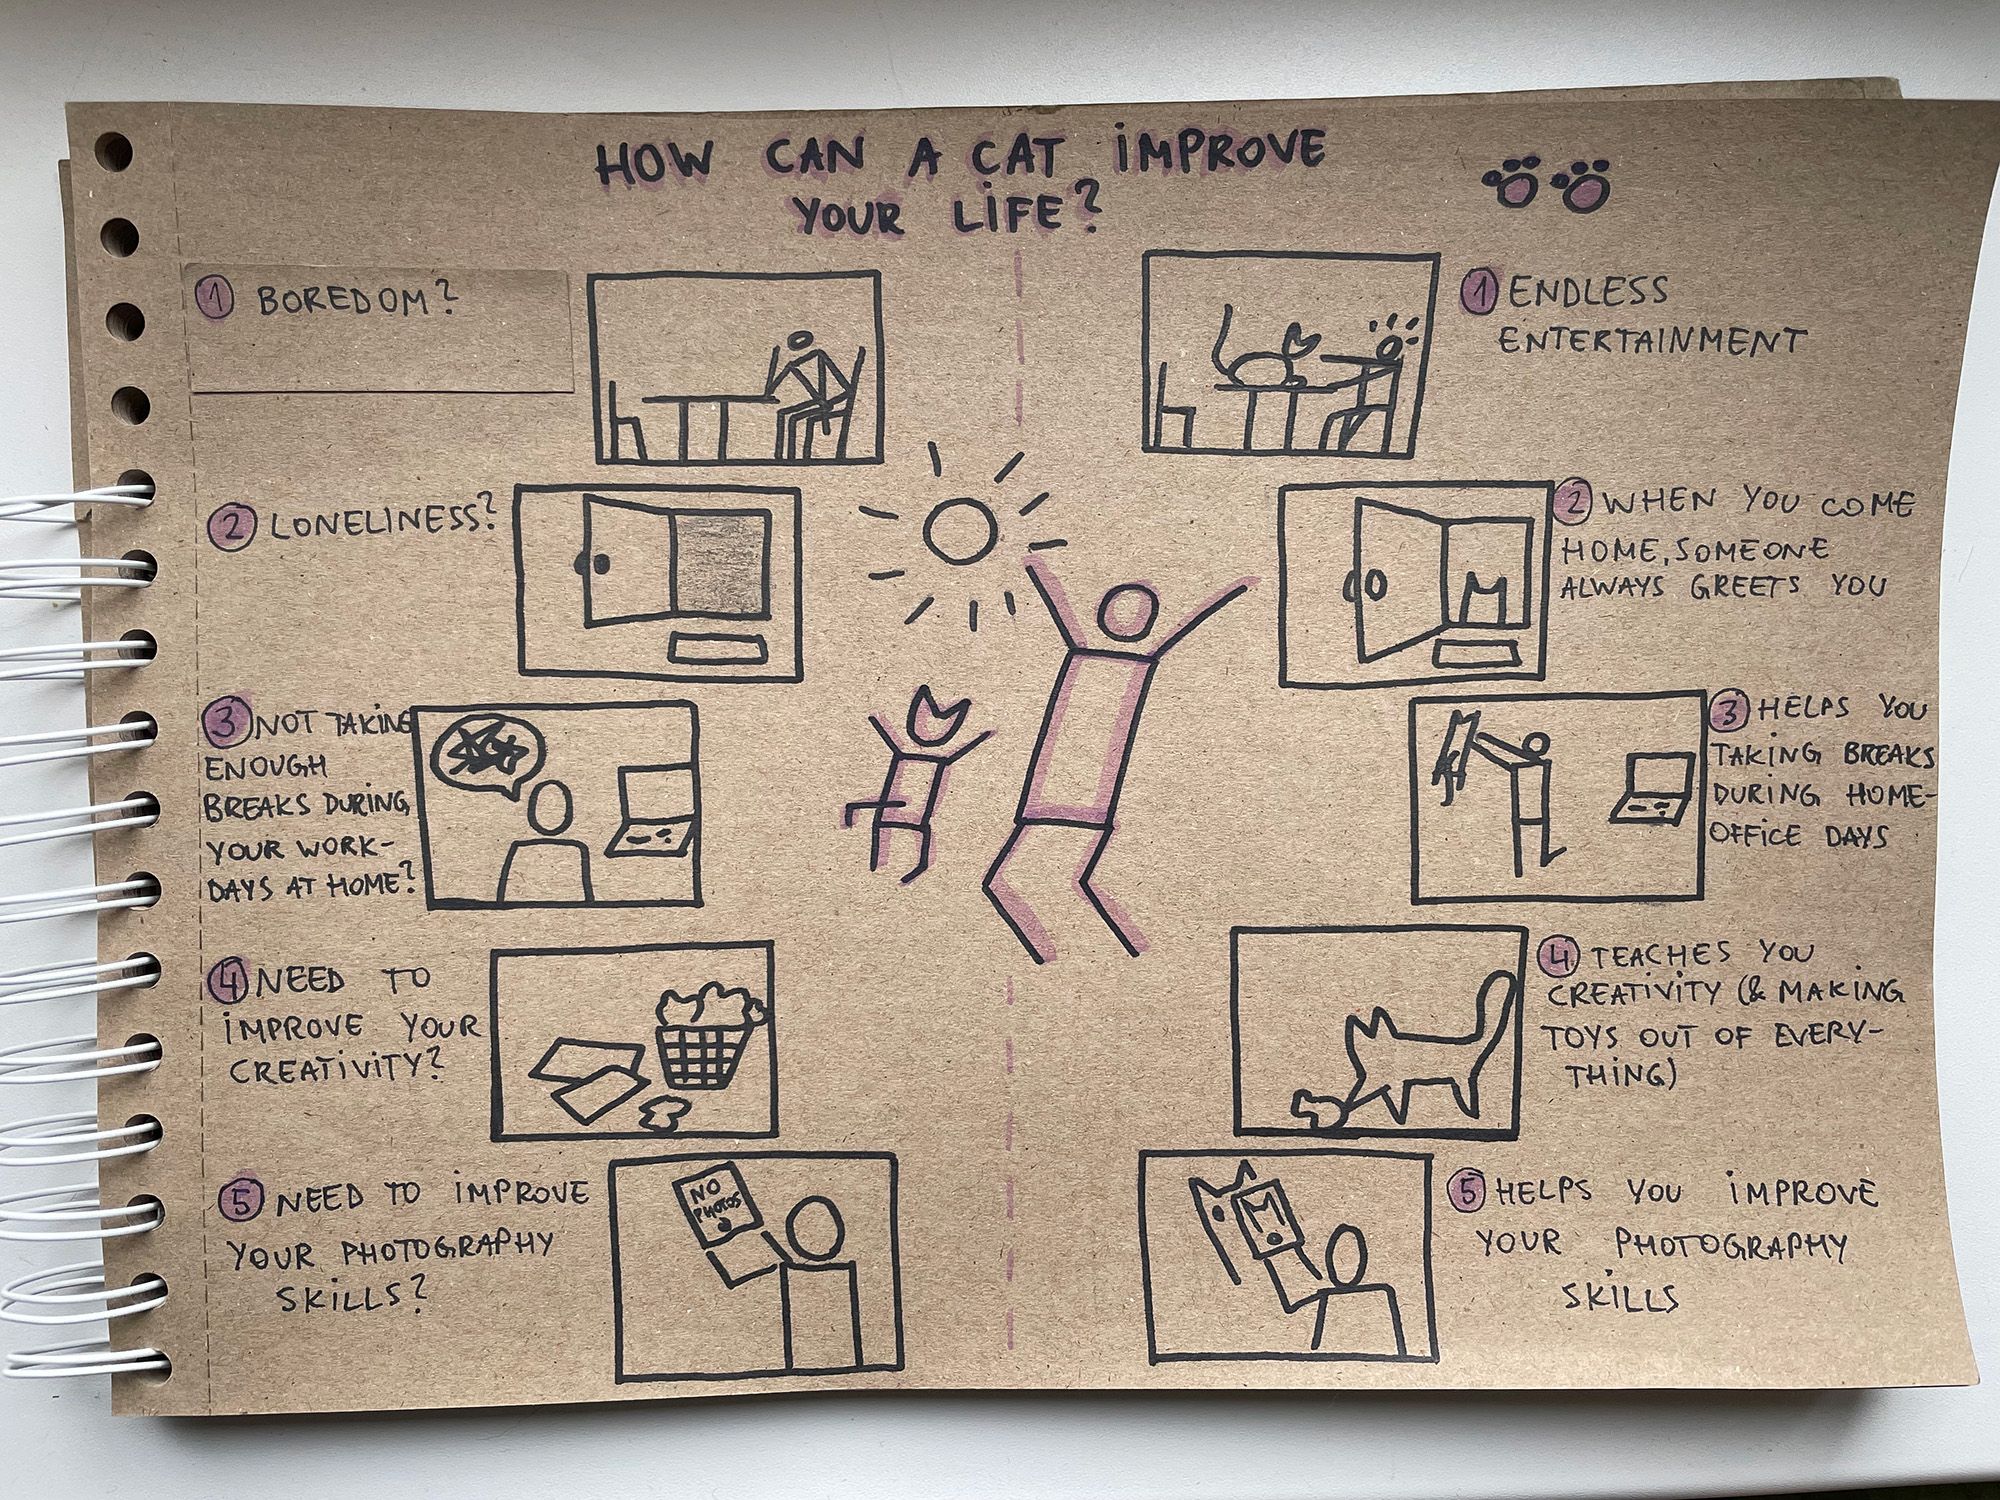 HOW CAN A CAT iMPROVE
YOUR LiFE?
1 BOREDOM?
2 LONELINESS?
3 NOT TAKiNG
ENOUGH
BREAKS DURiNG
YOUR WORK-
DAYS AT HOME?
4 NEED TO
iMPROVE YOUR
CREATiViTY?
5 NEED TO iMPROVE
YOUR PHOTOGRAPHY
SKiLLS?
NO
PHOTOS
1 ENDLESS
ENTERTAINMENT
2 WHEN YOU COME
HOME, SOMEONE
ALWAYS GREETS YOU
3 HELPS YOU
TAKING BREAKS
DURiNG HOME-
OFFiCE DAYS
4 TEACHES YOU
CREATiViTY (& MAKiNG
TOYS OUT OF EVERY-
THiNG)
5 HELPS YOU iMPROVE
YOUR PHOTOGRAPHY
SKiLLS